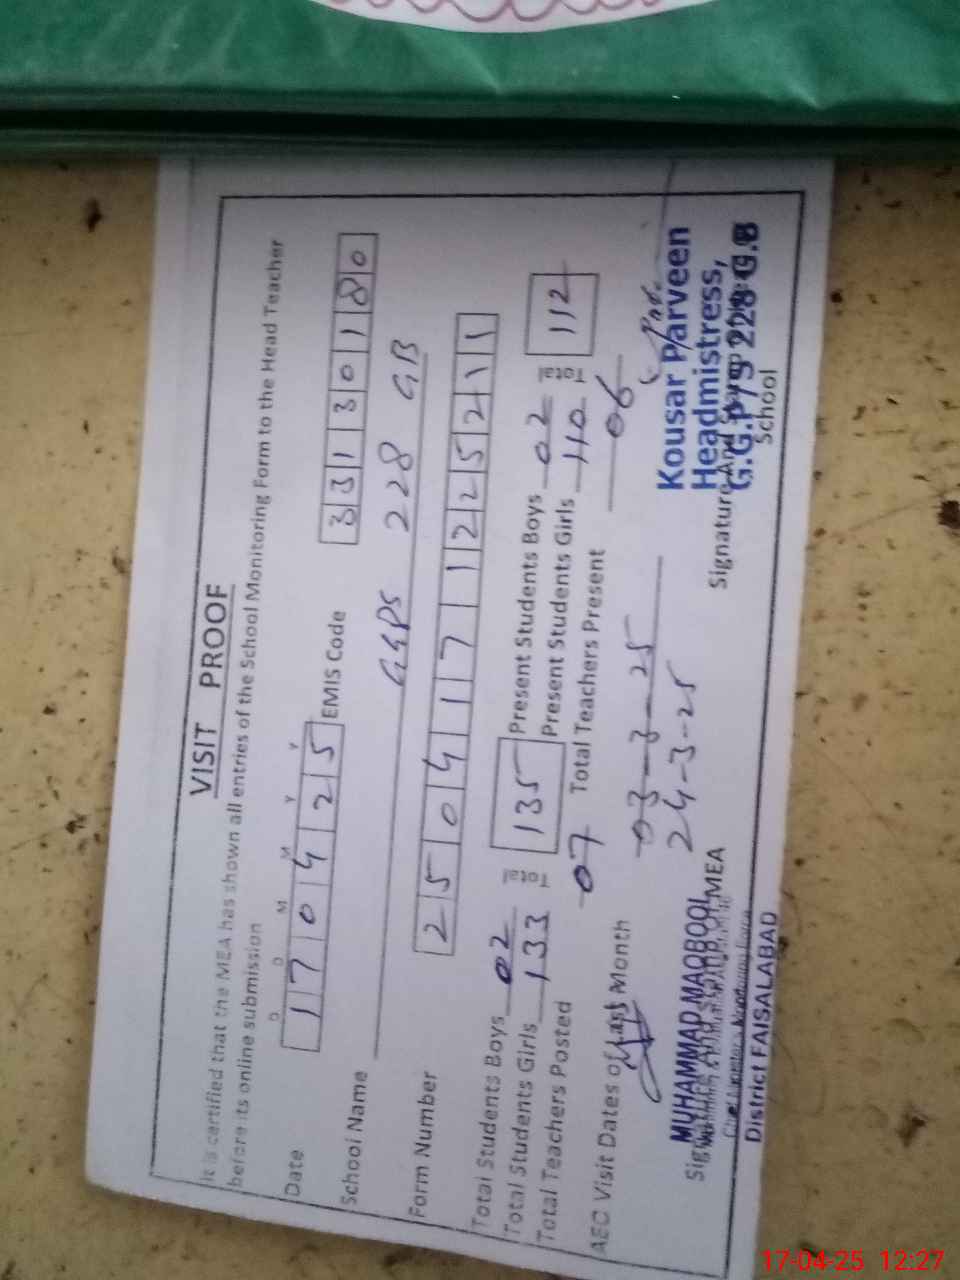 VISIT PROOF
It is certified that the MEA has shown all entries of the School Monitoring Form to the Head Teacher
before its online submission
D D M M Y Y
Date 170425 EMIS Code 33130180
School Name GGPS 228 GB
Form Number 2504171225211
Total Students Boys 02 Total 135 Present Students Boys 02 Total 112
Total Students Girls 133 Present Students Girls 110
Total Teachers Posted 07 Total Teachers Present 06
AEO Visit Dates of Last Month 03-3-25
24-3-25
MUHAMMAD MAQBOOL
MEA
District FAISALABAD
Kousar Parveen
Headmistress,
G.G.P/S 228 G.B
Signature And
School
17-04-25 12:27